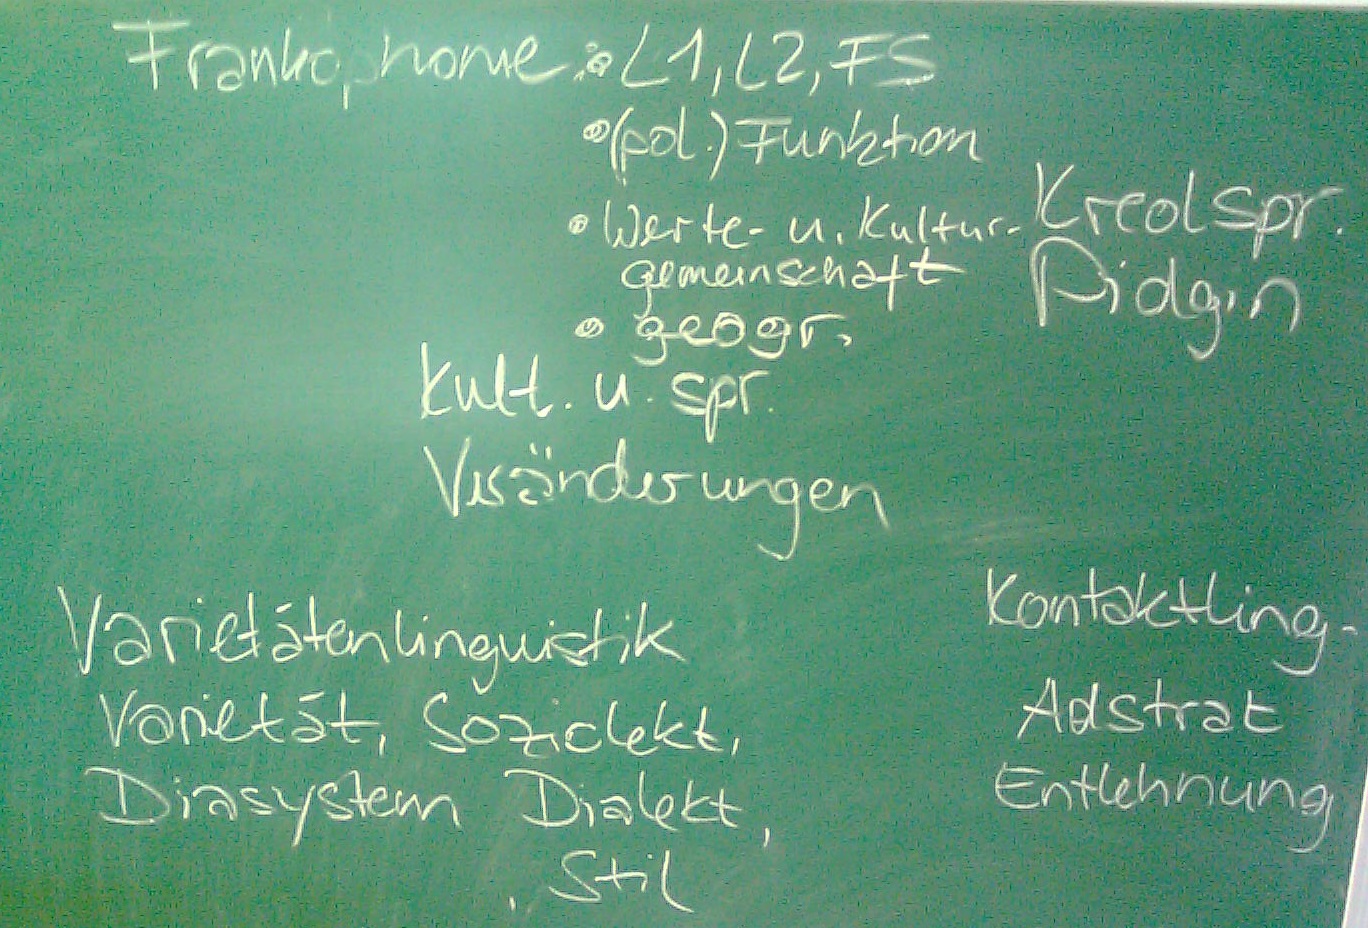 Frankophonie: • L1, L2, FS
• (pol.) Funktion
• Werte- u. Kultur-
gemeinschaft
• geogr.
Kreolspr.
Pidgin
kult. u. spr.
Veränderungen
Varietätenlinguistik
Varietät, Soziolekt,
Diasystem Dialekt,
, Stil
Kontaktling.
Adstrat
Entlehnung